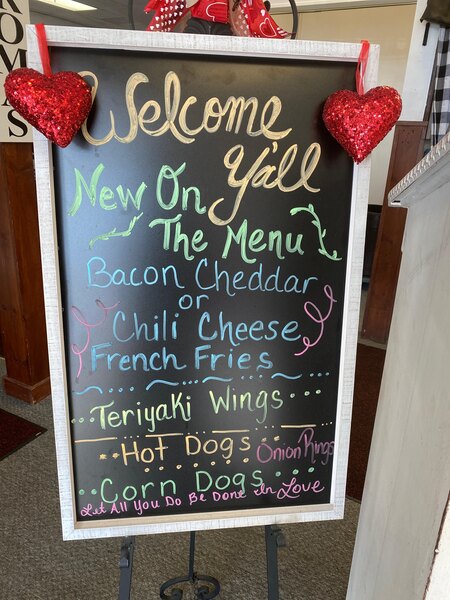 Welcome
Y'all
New On
The Menu
Bacon Cheddar
or
Chili Cheese
French Fries
Teriyaki Wings
Hot Dogs Onion Rings
Corn Dogs
Let All You Do Be Done In Love